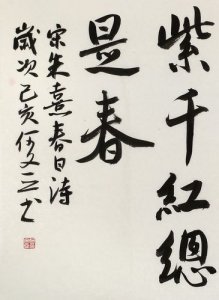 紫千红總
是春
宋朱熹春日诗
歲次己亥何文三书